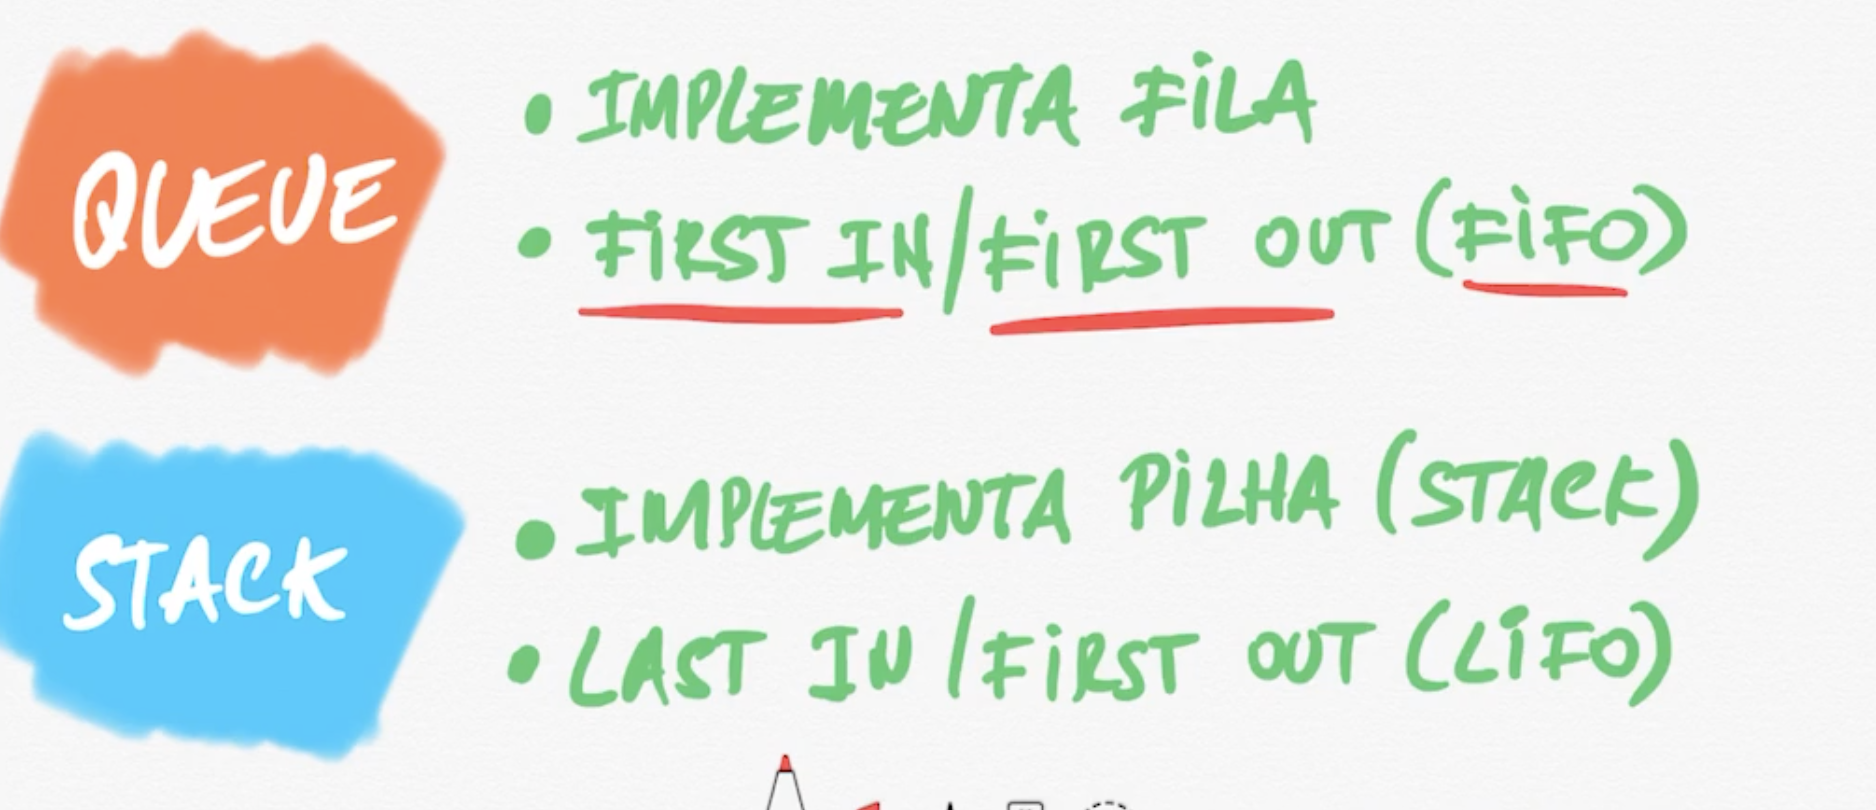 QUEUE
• IMPLEMENTA FILA
• FIRST IN/FIRST OUT (FIFO)
STACK
• IMPLEMENTA PILHA (STACK)
• LAST IN/FIRST OUT (LIFO)